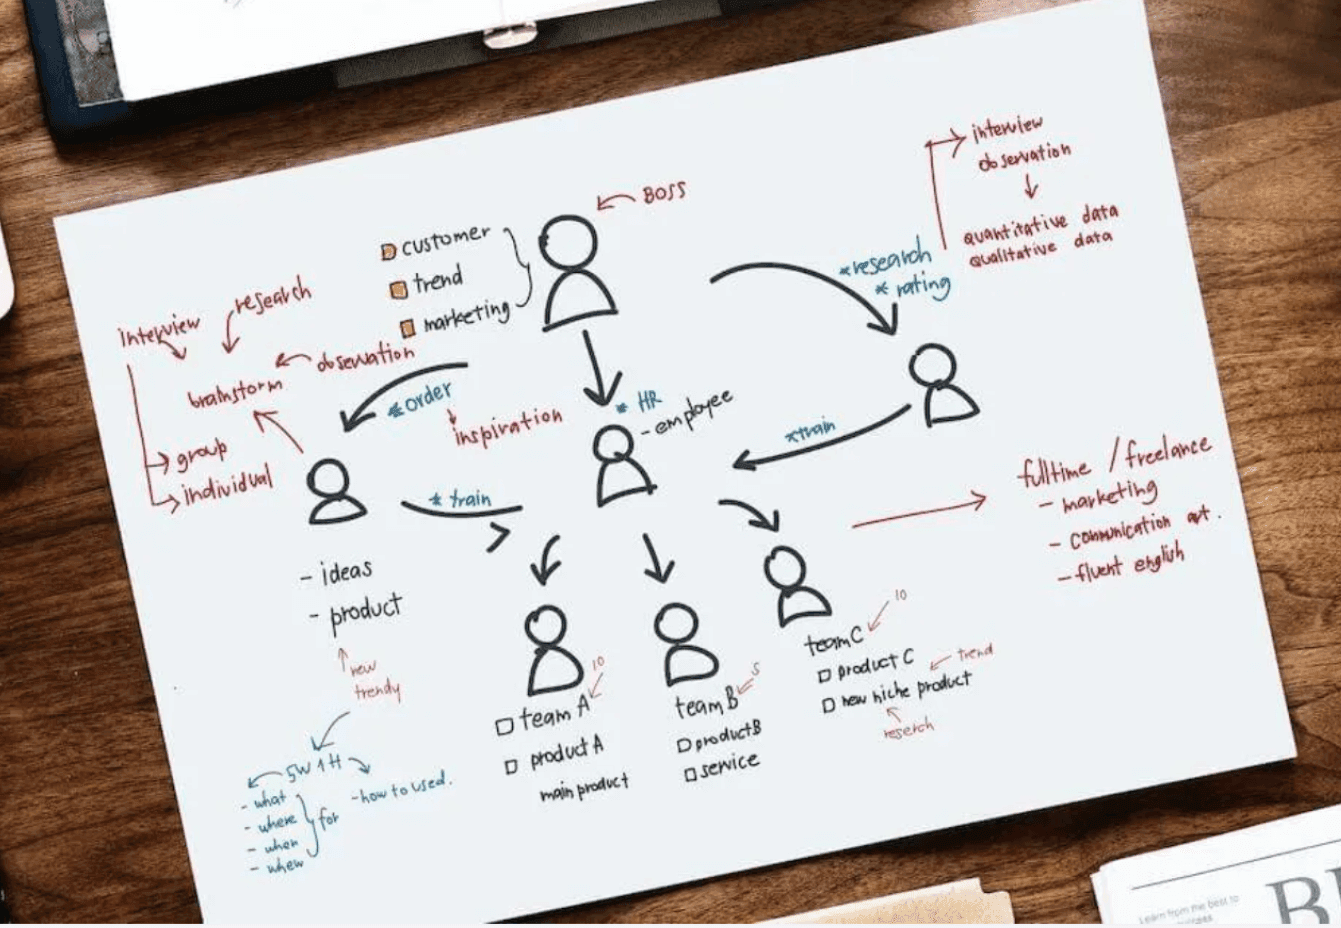 BOSS
customer
trend
marketing
interview
observation
quantitative data
qualitative data
*research
* rating
research
interview
observation
brainstorm
group
individual
*order
inspiration
* HR
- employee
*train
* train
fulltime / freelance
- marketing
- communication art.
- fluent english
- ideas
- product
new
trendy
5W1H
- what
- where
- when
- when
for
- how to used.
10
team A
product A
main product
5
team B
product B
service
10
team C
product C
trend
new niche product
reserch
Learn from the best to